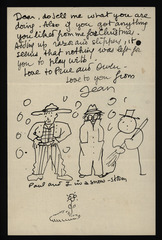 Dear, do tell me what you are
doing. Also if you got anything
you liked from me for Christmas.
and slippers, it
seems that nothing was left for
you to play with.
Love to Paul and
Love to you from
Jean
Paul and I in a snow-storm